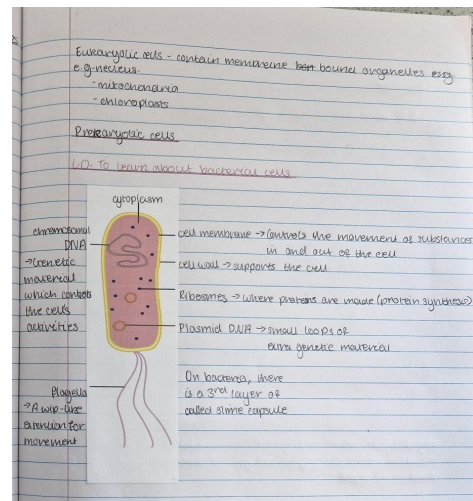 Eukaryotic cells - contain membrane bound organelles
e.g-nucleus.
-mitochondria
-chloroplasts
Prokaryotic cells
L.O. To learn about bacterial cells
cytoplasm
chromosomal
DNA
→Genetic
material
which controls
the cells
activities
cell membrane → controls the movement of substances
in and out of the cell
cell wall → supports the cell
Ribosomes → where proteins are made (protein synthesis)
Plasmid DNA → small loops of
extra genetic material
Flagella
→A wip-like
extention for
movement
On bacteria, there
is a 3rd layer of
called slime capsule